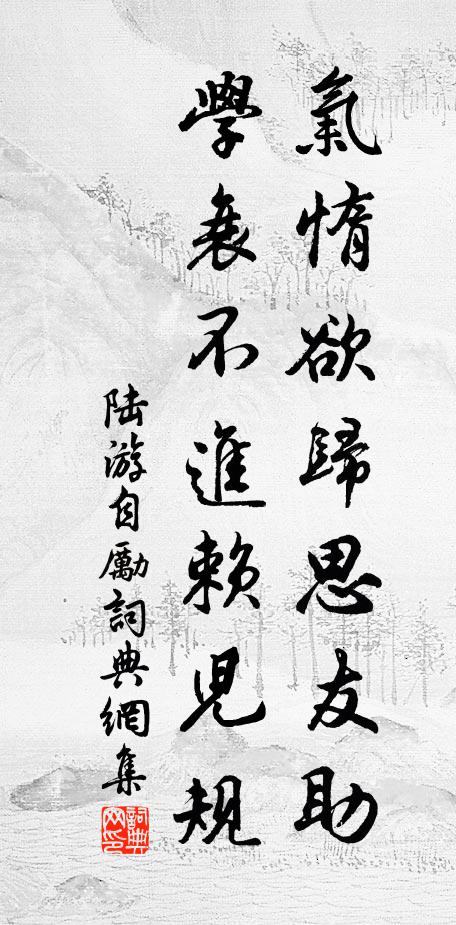 氣惰欲歸思友助
學衰不進賴兒規
陆游自勵詞典網集
詞典網印